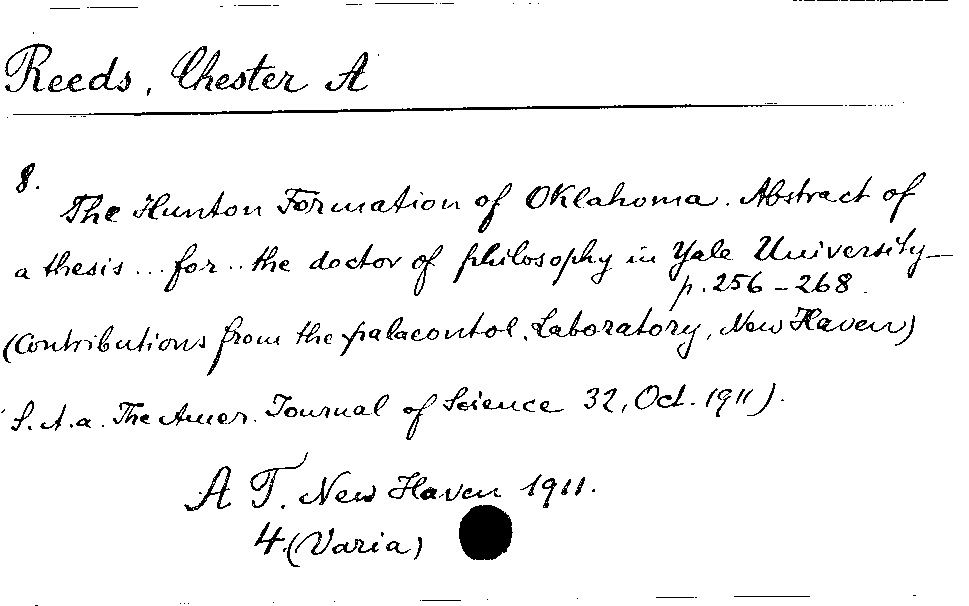 Reeds, Chester A
8.
The Hunton Formation of Oklahoma. Abstract of
a thesis...for..the doctor of philosophy in Yale University—
p. 256-268.
(Contributions from the palaeontol. Laboratory, New Haven)
(S.A.a. The Amer. Journal of Science 32, Oct. 1911).
A T. New Haven 1911.
4.(Varia)